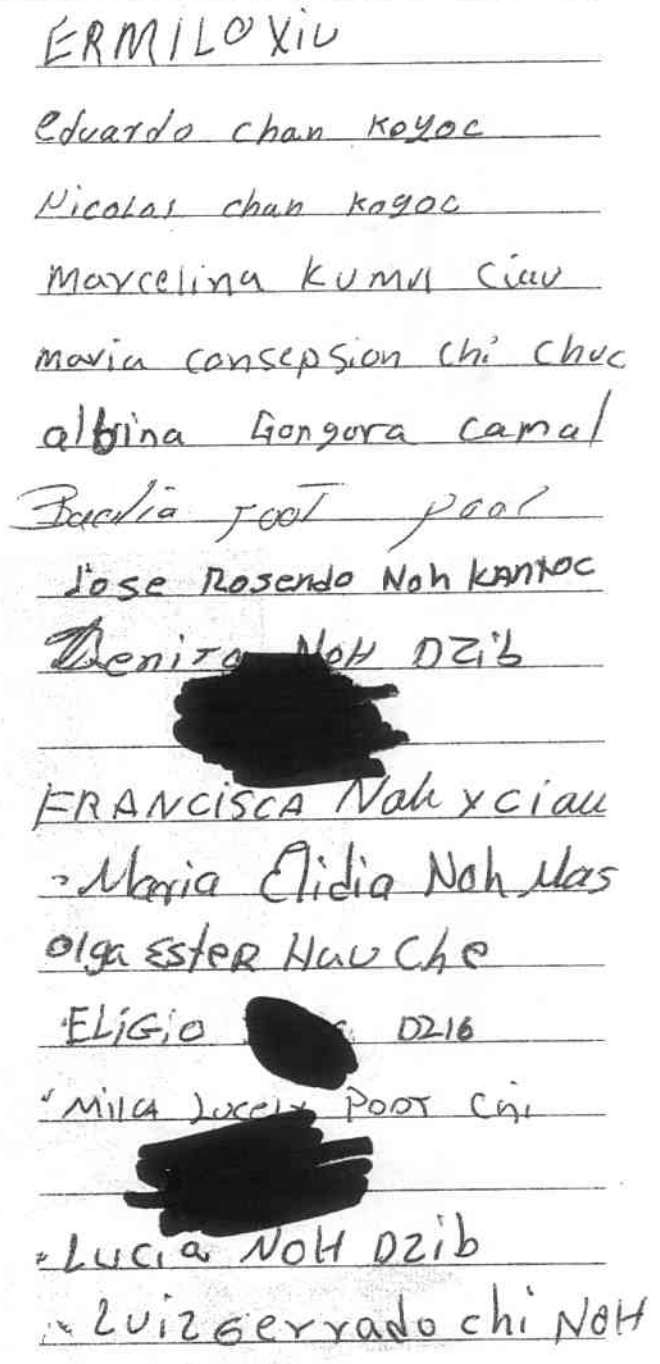 ERMILO XIU
eduardo chan Koyoc
Nicolas chan Koyoc
Marcelina Kumul Ciau
maria consepsion chi chuc
albina Gongora camal
poot pool
Jose Rosendo Noh KANXOC
Benita NOH DZib
FRANCISCA Noh y ciau
Maria Elidia Noh Mas
Olga EsteR Hau Che
ELiGiO DZIB
Milca Lucely POOT Chi
Lucia NOH DZib
Luiz Gerrado chi NOH